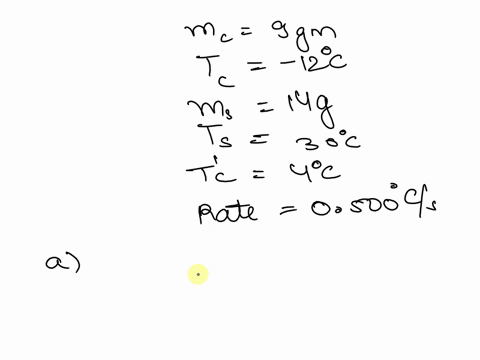 m_c = 9 gm
T_c = -12°C
m_s = 14g
T_s = 30°C
T'_c = 4°C
Rate = 0.500°C/s
a)